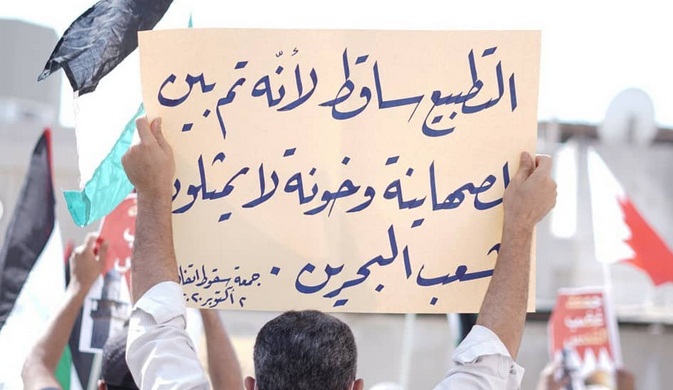 التطبيع ساقط لأنّه تم بين
صهاينة وخونة لا يمثلون
شعب البحرين .
جمعة سقوط
٢ أكتوبر ٢٠٢٠